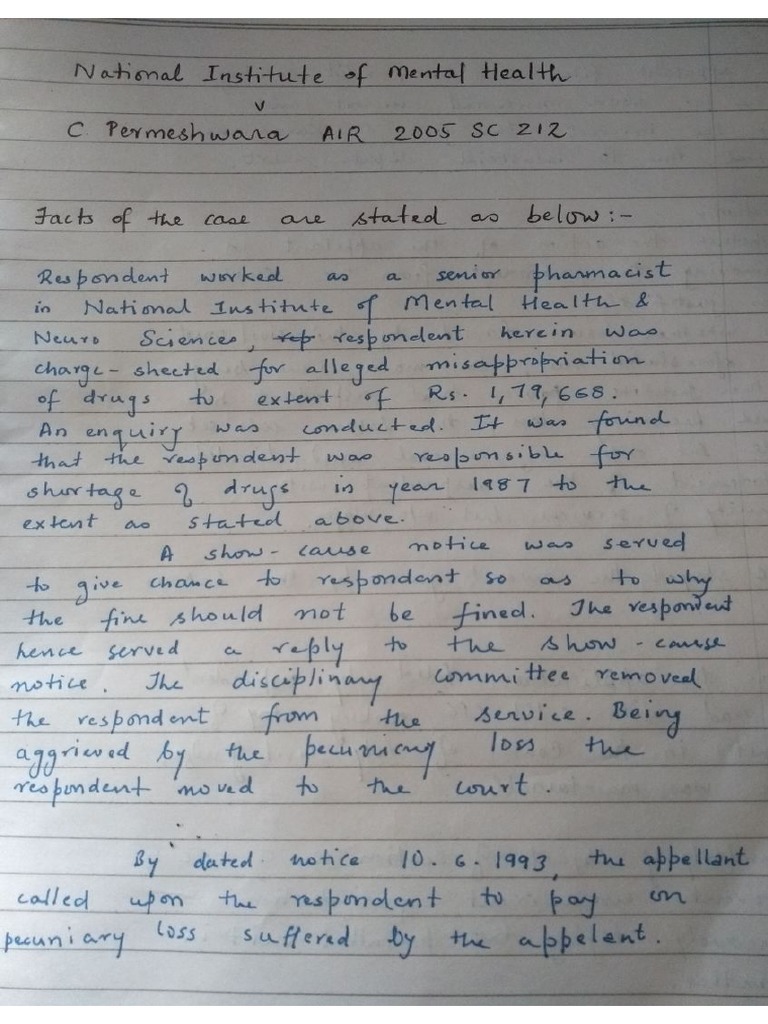 National Institute of Mental Health
v
C Permeshwara AIR 2005 SC 212
Facts of the case are stated as below:-
Respondent worked as a senior pharmacist
in National Institute of Mental Health &
Neuro Sciences, rep respondent herein was
charge-sheeted for alleged misappropriation
of drugs to extent of Rs. 1,79,668.
An enquiry was conducted. It was found
that the respondent was responsible for
shortage of drugs in year 1987 to the
extent as stated above.
A show-cause notice was served
to give chance to respondent so as to why
the fine should not be fined. The respondent
hence served a reply to the show-cause
notice. The disciplinary committee removed
the respondent from the service. Being
aggrieved by the pecuniary loss the
respondent moved to the court.
By dated notice 10.6.1993, the appellant
called upon the respondent to pay on
pecuniary loss suffered by the appelent.